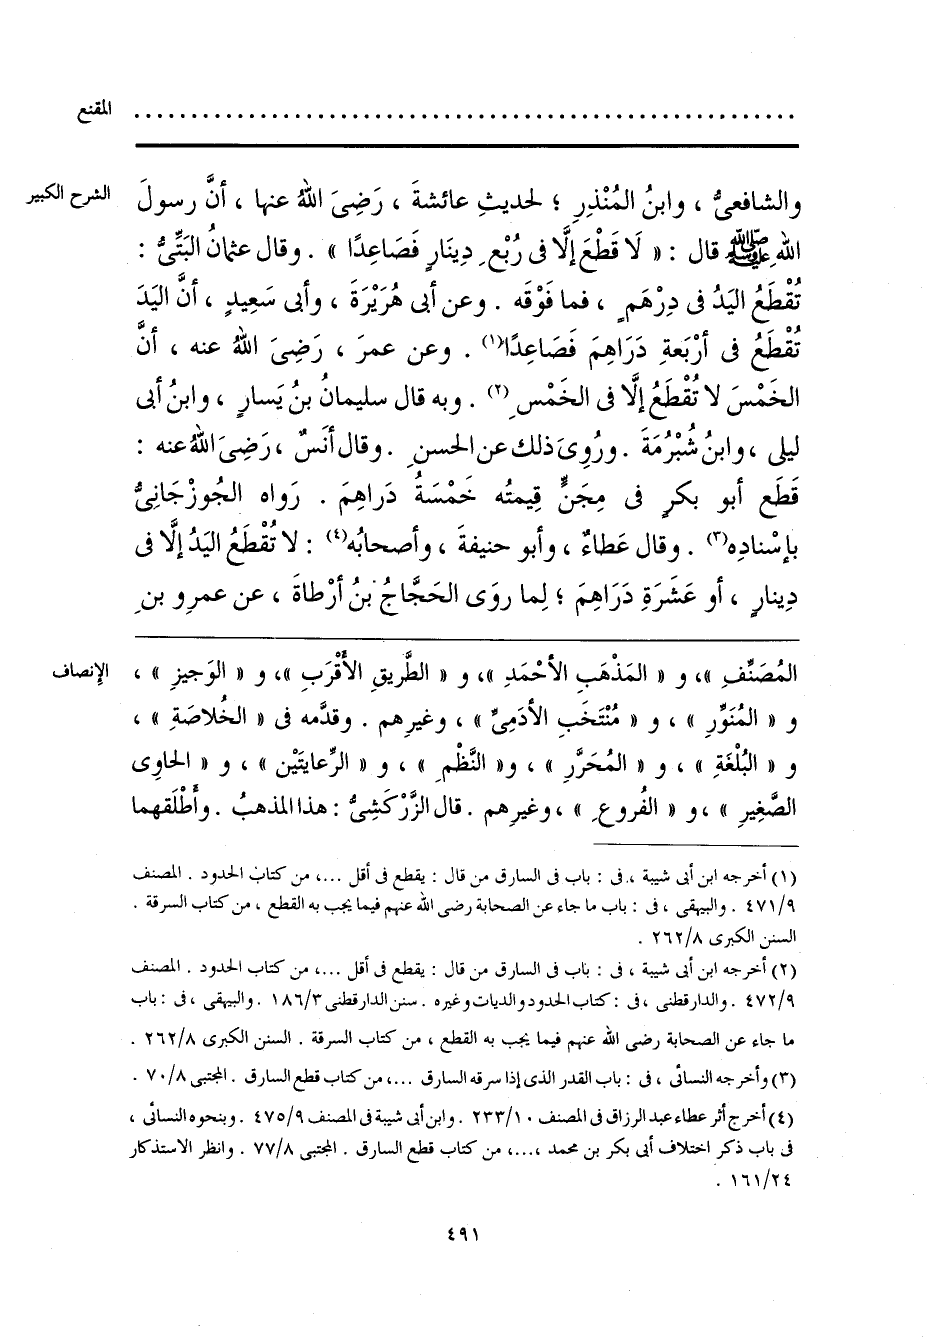 المقنع ................................................................
الشرح الكبير والشافعىُّ ، وابنُ المُنْذِرِ ؛ لحديثِ عائشةَ ، رَضِىَ اللهُ عنها ، أنَّ رسولَ
اللهِ ﷺ قال : « لَا قَطْعَ إلَّا فى رُبْعِ دِينَارٍ فَصَاعِدًا » . وقال عثمانُ البَتِّىُّ :
تُقْطَعُ اليَدُ فى دِرْهَمٍ ، فما فَوْقَه . وعن أبى هُرَيْرَةَ ، وأبى سَعِيدٍ ، أنَّ اليَدَ
تُقْطَعُ فى أرْبَعةِ دَرَاهِمَ فَصَاعِدًا(١) . وعن عمرَ ، رَضِىَ اللهُ عنه ، أنَّ
الخَمْسَ لا تُقْطَعُ إلَّا فى الخَمْسِ(٢) . وبه قال سليمانُ بنُ يَسارٍ ، وابنُ أبى
ليلى ، وابنُ شُبْرُمَةَ . ورُوِىَ ذلك عن الحسنِ . وقال أنَسٌ ، رَضِىَ اللهُ عنه :
قَطَع أبو بكرٍ فى مِجَنٍّ قِيمتُه خَمْسَةُ دَراهِمَ . رَواه الجُوزْجَانِىُّ
بإسْنادِه(٣) . وقال عَطاءٌ ، وأبو حنيفةَ ، وأصحابُه(٤) : لا تُقْطَعُ اليَدُ إلَّا فى
دِينارٍ ، أو عَشَرَةِ دَرَاهِمَ ؛ لِما روَى الحَجَّاجُ بنُ أرْطاةَ ، عن عمرِو بنِ
الإنصاف المُصَنِّفِ »، و « المَذْهَبِ الأحْمَدِ »، و « الطَّرِيقِ الأَقْرَبِ »، و « الوَجيزِ » ،
و « المُنَوِّرِ » ، و « مُنْتَخَبِ الأدَمِىِّ » ، وغيرِهم . وقدَّمه فى « الخُلاصَةِ » ،
و « البُلْغَةِ » ، و « المُحَرَّرِ » ، و« النَّظْمِ » ، و « الرِّعايتَيْن » ، و « الحاوِى
الصَّغِيرِ » ، و « الفُروعِ » ، وغيرِهم . قال الزَّرْكَشِىُّ : هذا المذهبُ . وأَطْلَقهما
(١) أخرجه ابن أبى شيبة ، فى : باب فى السارق من قال : يقطع فى أقل ...، من كتاب الحدود . المصنف
٤٧١/٩ . والبيهقى ، فى : باب ما جاء عن الصحابة رضى الله عنهم فيما يجب به القطع ، من كتاب السرقة .
السنن الكبرى ٢٦٢/٨ .
(٢) أخرجه ابن أبى شيبة ، فى : باب فى السارق من قال : يقطع فى أقل ...، من كتاب الحدود . المصنف
٤٧٢/٩ . والدارقطنى ، فى : كتاب الحدود والديات وغيره . سنن الدارقطنى ١٨٦/٣ . والبيهقى ، فى : باب
ما جاء عن الصحابة رضى الله عنهم فيما يجب به القطع ، من كتاب السرقة . السنن الكبرى ٢٦٢/٨ .
(٣) وأخرجه النسائى ، فى : باب القدر الذى إذا سرقه السارق ...، من كتاب قطع السارق . المجتبى ٧٠/٨ .
(٤) أخرج أثر عطاء عبد الرزاق فى المصنف ٢٣٣/١٠ . وابن أبى شيبة فى المصنف ٤٧٥/٩ . وبنحوه النسائى ،
فى باب ذكر اختلاف أبى بكر بن محمد ،...، من كتاب قطع السارق . المجتبى ٧٧/٨ . وانظر الاستذكار
١٦١/٢٤ .
٤٩١